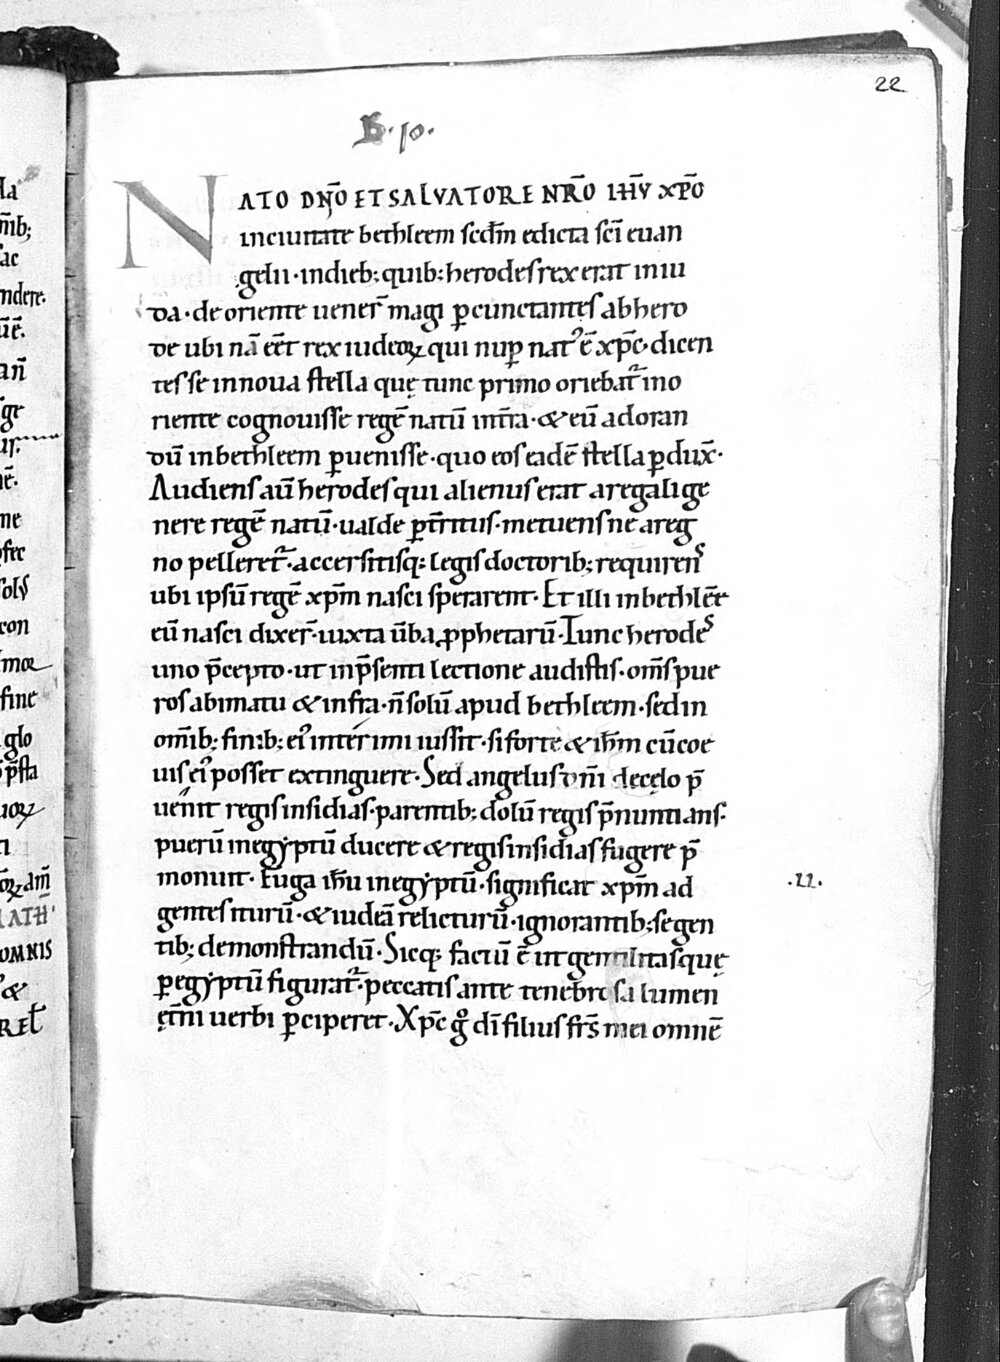 22
B·10·
NATO DN̄O ET SALVATORE NR̄O IHV̄ XPŌ
inciuitate bethleem scdm̄ edicta scī euan
gelii · indieb; quib; herodes rex erat iniu
da · de oriente uener̄ magi ꝑcunctantes ab hero
de ubi nā eēt rex iudeoꝝ qui nuꝑ natꝰ ē xp̄c · dicen
tes se innoua stella quę tunc primo oriebat᷑ ino
riente cognouisse regē natū intr̄a · & eū adoran
dū inbethleem ꝑuenisse · quo eos eadē stella ꝑdux̄ ·
Audiens aū herodes qui alienus erat aregali ge
nere regē natū · ualde ꝑtr̄ritus · metuens ne areg
no pelleret᷑ · accersitisq; legis doctorib; requirens
ubi ipsū regē xp̄m nasci sperarent · Et illi inbethleē
eū nasci dixer̄ · iuxta ūba ꝓphetarū · Tunc herodes
uno p̄cepto · ut inp̄senti lectione audistis · om̄s pue
ros abimatu & infra · n̄ solū apud bethleem · sed in
om̄ib; finib; eiꝰ interimi iussit · si forte & ih̄m cū coe
uis eiꝰ posset extinguere · Sed angelus dn̄i de cęlo p̄
uenit regis insidias · parentib; dolū regis p̄nuntians ·
puerū inegẏptū ducere & regis insidias fugere p̄
monuit · Fuga ih̄u inegẏptū · significat xp̄m ad
·22·
gentes iturū · & iudeā relicturū · ignorantib; se gen
tib; demonstrandū · Sicq; factū ē ut gentilitas quę
ꝑ egẏptū figurat᷑ · peccatis ante tenebrosa lumen
ęt̄ni uerbi ꝑciperet · Xp̄c gͦ dī filius frs̄ mei omnē